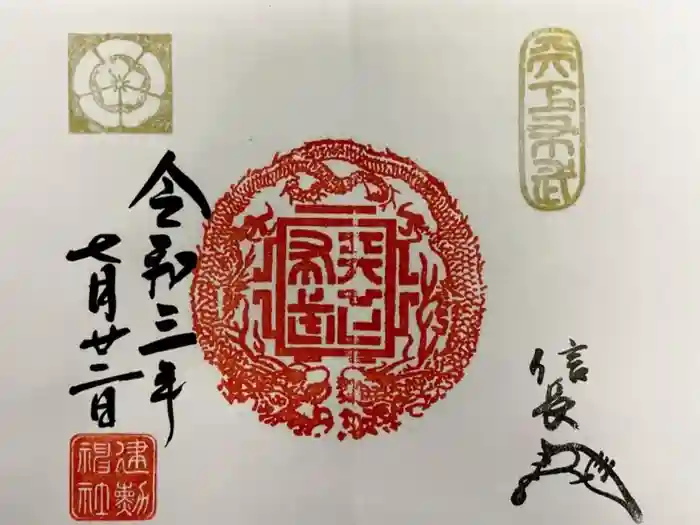 天下布武
天下
布武
信長
令和三年
七月廿二日
建勲
神社